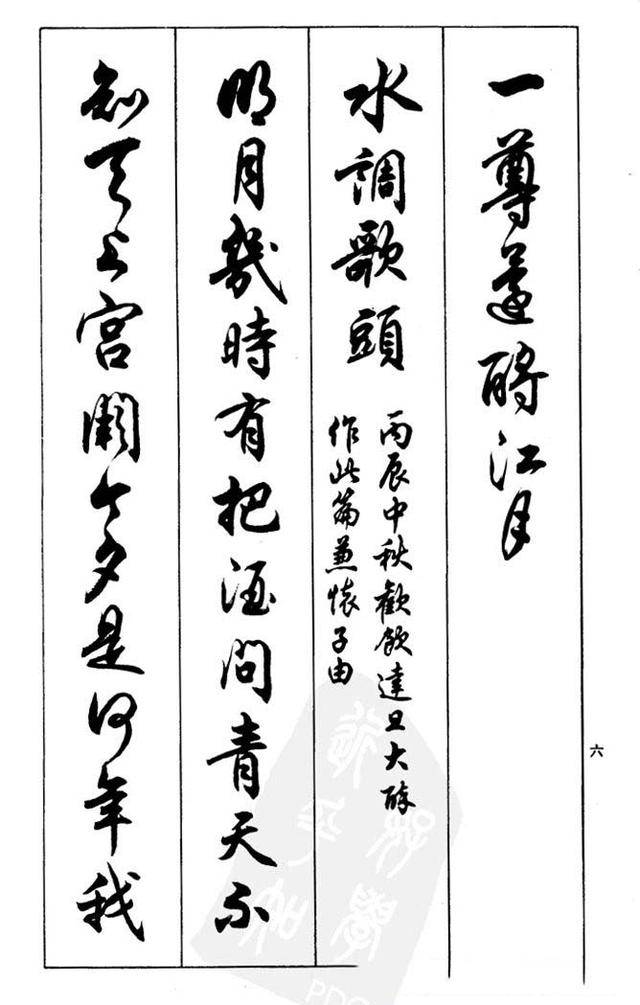 一尊還酹江月
水調歌頭
丙辰中秋歡飲達旦大醉
作此篇兼懷子由
明月幾時有把酒問青天不
知天上宮闕今夕是何年我
六